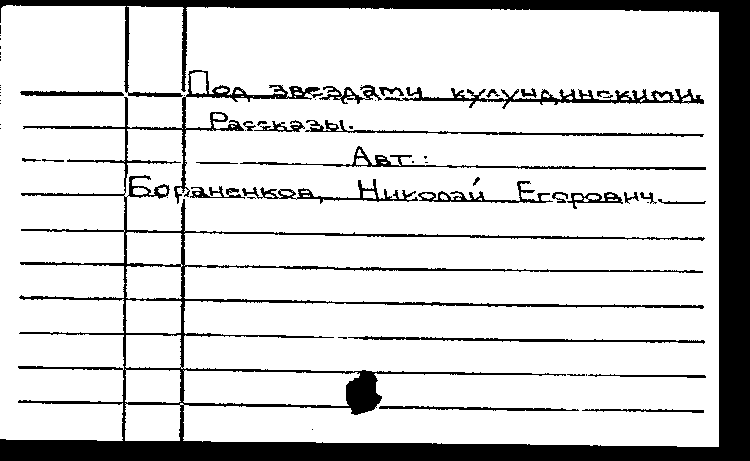 Под звездами кулундинскими.
Рассказы.
Авт.:
Бораненков, Николай Егорович.